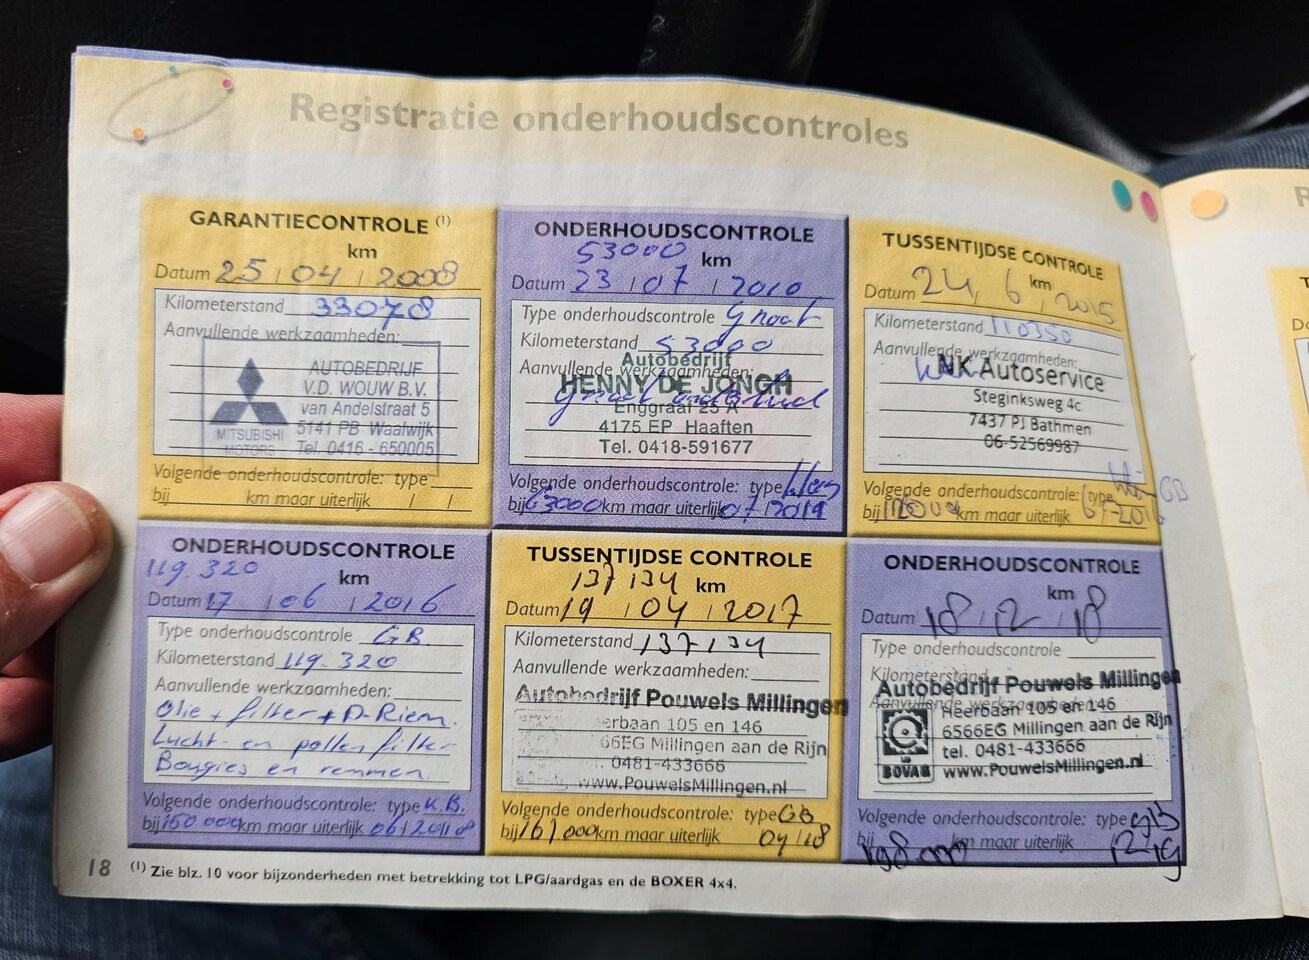 Registratie onderhoudscontroles
GARANTIECONTROLE (1)
km
Datum 25 / 04 / 2008
Kilometerstand 33078
Aanvullende werkzaamheden:
AUTOBEDRIJF
V.D. WOUW B.V.
van Andelstraat 5
5141 PB Waalwijk
Tel. 0416 - 650005
MITSUBISHI
MOTORS
Volgende onderhoudscontrole: type
bij km maar uiterlijk / /
ONDERHOUDSCONTROLE
53000 km
Datum 23 / 07 / 2010
Type onderhoudscontrole Groot
Kilometerstand 53000
Aanvullende werkzaamheden:
Autobedrijf
HENNY DE JONGH
Groot onderhoud
Enggraaf 25 A
4175 EP Haaften
Tel. 0418-591677
Volgende onderhoudscontrole: type
bij 63000 km maar uiterlijk 07/2011
TUSSENTIJDSE CONTROLE
km
Datum 24 / 6 / 2015
Kilometerstand 110350
Aanvullende werkzaamheden:
NK Autoservice
Steginksweg 4c
7437 PJ Bathmen
06-52569987
Volgende onderhoudscontrole: type
bij km maar uiterlijk 6-2016
ONDERHOUDSCONTROLE
119.320 km
Datum 17 / 06 / 2016
Type onderhoudscontrole GB.
Kilometerstand 119.320
Aanvullende werkzaamheden:
Olie + filter + D-Riem.
Lucht- en pollenfilter
Bougies en remmen
Volgende onderhoudscontrole: type K.B.
bij 150 000 km maar uiterlijk 06/2018
TUSSENTIJDSE CONTROLE
137134 km
Datum 19 / 04 / 2017
Kilometerstand 137134
Aanvullende werkzaamheden:
Autobedrijf Pouwels Millingen
erbaan 105 en 146
66EG Millingen aan de Rijn
0481-433666
www.PouwelsMillingen.nl
Volgende onderhoudscontrole: type GB
bij 161.000 km maar uiterlijk 04/18
ONDERHOUDSCONTROLE
km
Datum 18 / 12 / 18
Type onderhoudscontrole
Kilometerstand
Autobedrijf Pouwels Millingen
Aanvullende werkzaamheden:
Heerbaan 105 en 146
6566EG Millingen aan de Rijn
tel. 0481-433666
www.PouwelsMillingen.nl
BOVAG
Volgende onderhoudscontrole: type GB
bij 198.000 km maar uiterlijk 12-19
18 (1) Zie blz. 10 voor bijzonderheden met betrekking tot LPG/aardgas en de BOXER 4x4.